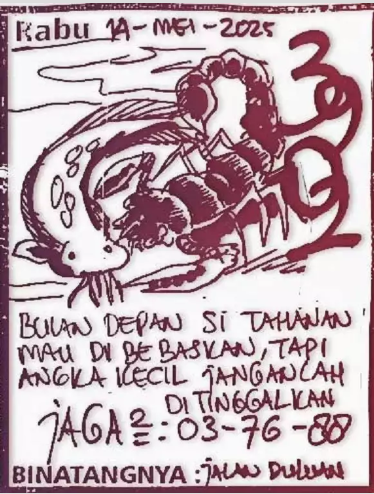 Rabu 14-MEI-2025
BULAN DEPAN SI TAHANAN
MAU DI BEBASKAN, TAPI
ANGKA KECIL JANGANLAH
DITINGGALKAN
JAGA2=: 03-76-88
BINATANGNYA : JALAN DULUAN